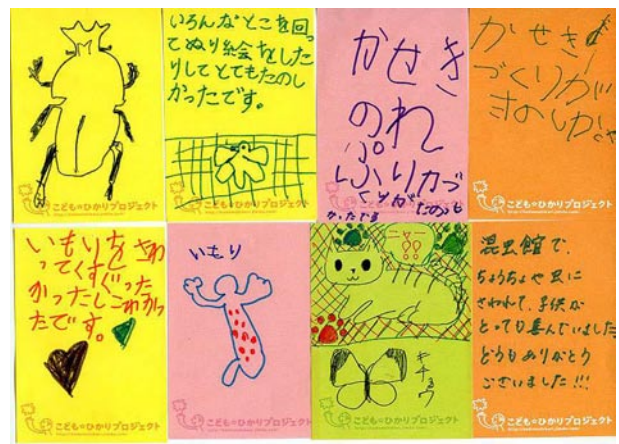 こども*ひかりプロジェクト
いろんなとこを回っ
てぬり絵をした
りしてとてもたのし
かったです。
こども*ひかりプロジェクト
かせき
のれ
ぷりカづ
くりが たのし
かったです
こども*ひかりプロジェクト
かせき
づくりが
きのしか
こども*ひかりプロジェクト
いもりをさわ
ってくすぐった
かったしこわかっ
たです。
こども*ひかりプロジェクト
いもり
こども*ひかりプロジェクト
ニャー!!
キチョウ
こども*ひかりプロジェクト
昆虫館で、
ちょうちょや虫に
さわれて、子供が
とっても喜んでいました
どうもありがとう
ございました!!!
こども*ひかりプロジェクト